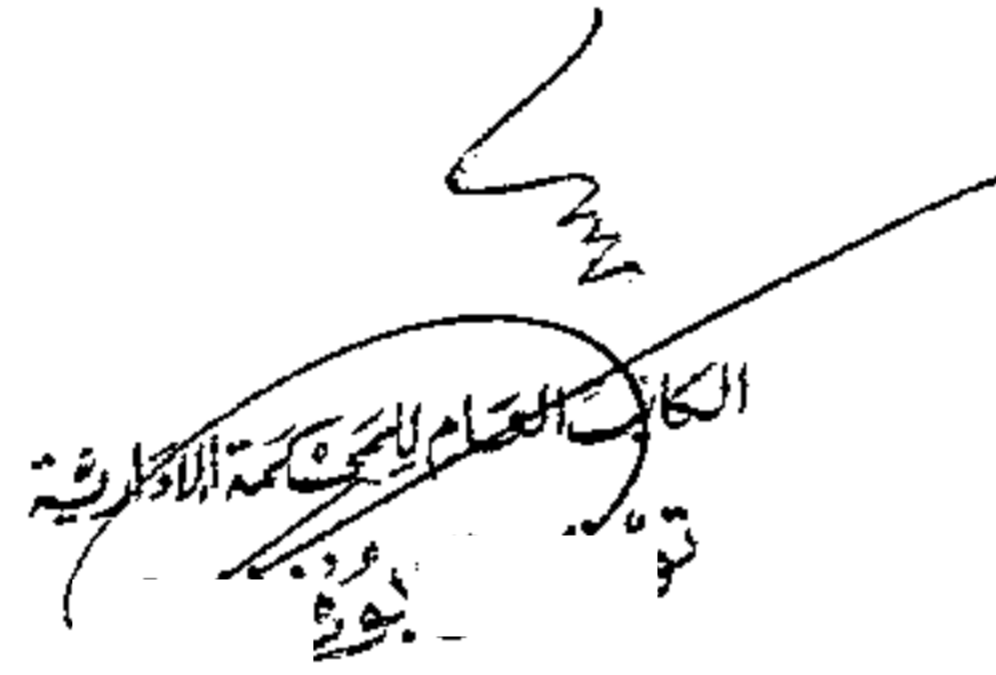 الكاتب العام للمحكمة الادارية